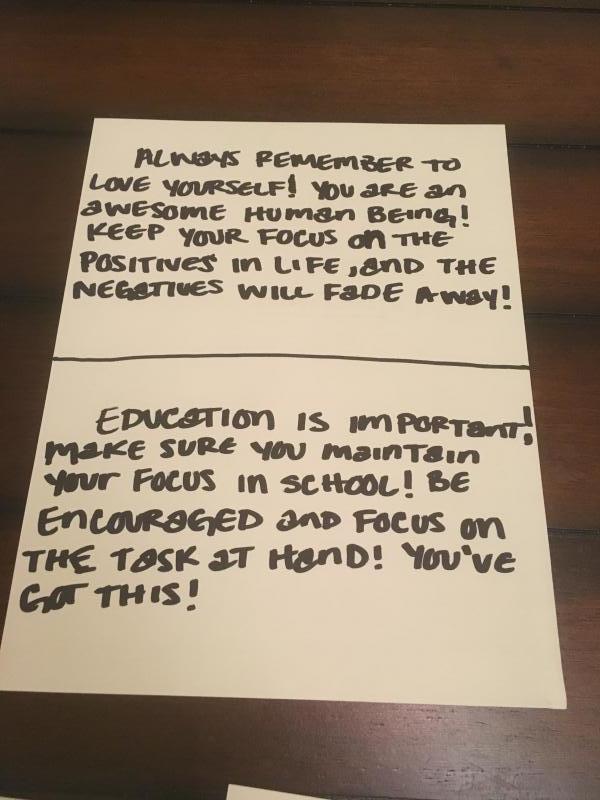 ALWAYS REMEMBER TO
LOVE YOURSELF! YOU ARE AN
AWESOME HUMAN BEING!
KEEP YOUR FOCUS ON THE
POSITIVES IN LIFE, AND THE
NEGATIVES WILL FADE AWAY!
EDUCATION IS IMPORTANT!
MAKE SURE YOU MAINTAIN
YOUR FOCUS IN SCHOOL! BE
ENCOURAGED AND FOCUS ON
THE TASK AT HAND! YOU'VE
GOT THIS!